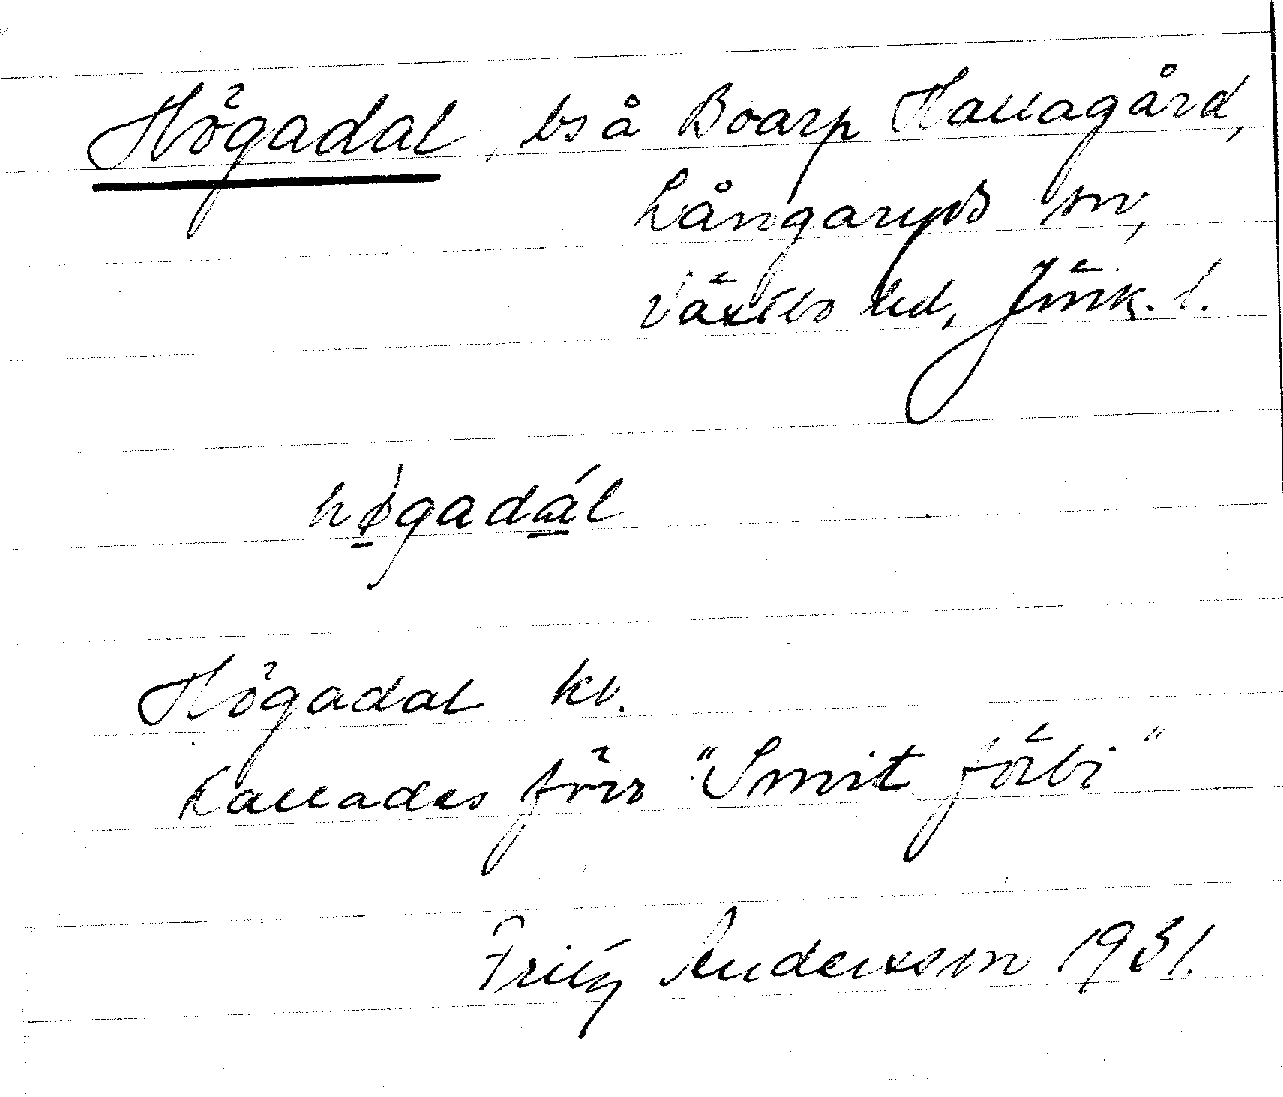 Högadal, bs å Boarp Hallagård,
Långaryds sn,
Västbo hd, Jönk. l.
hø̀gadál
Högadal kv.
Kallades förr "Smit förbi"
Fritz Andersson 1931.